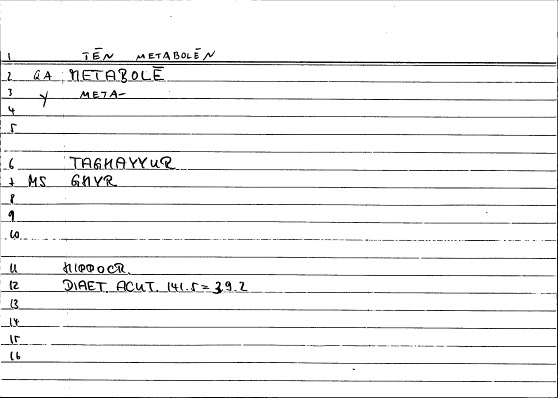 1 TĒN METABOLĒN
2 GA METABOLĒ
3 Y META-
4
5
6 TAGHAYYUR
7 MS GHYR
8
9
10
11 HIPPOCR.
12 DIAET. ACUT. 141.5 = 39.2
13
14
15
16